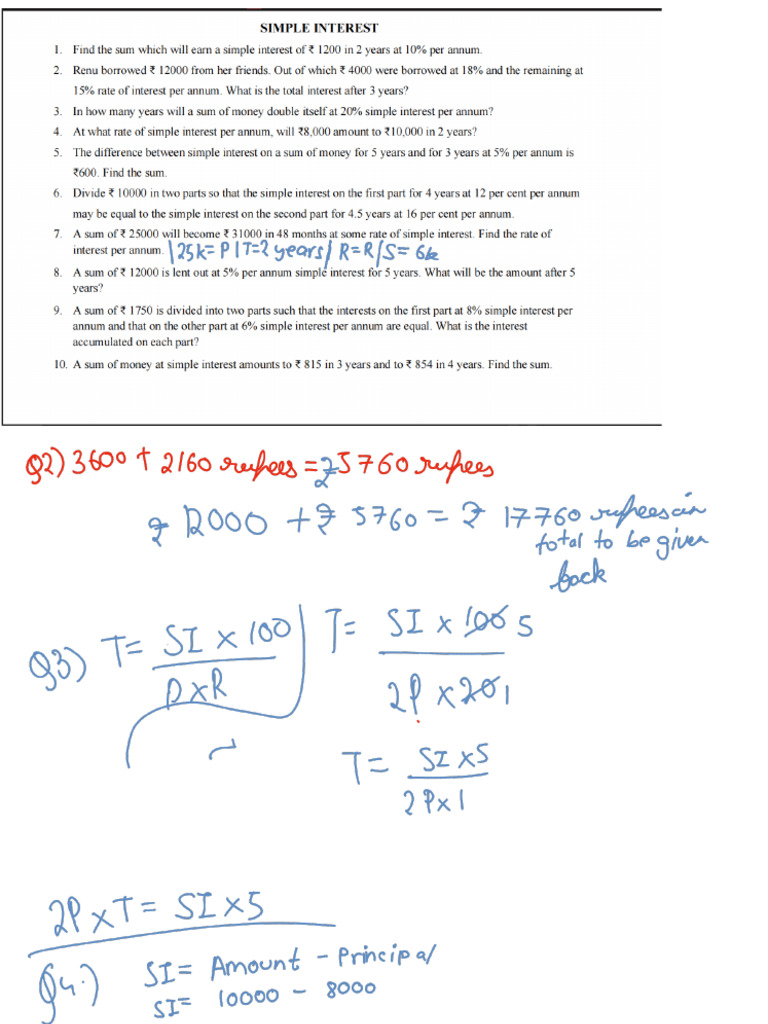 SIMPLE INTEREST
1. Find the sum which will earn a simple interest of ₹ 1200 in 2 years at 10% per annum.
2. Renu borrowed ₹ 12000 from her friends. Out of which ₹ 4000 were borrowed at 18% and the remaining at
15% rate of interest per annum. What is the total interest after 3 years?
3. In how many years will a sum of money double itself at 20% simple interest per annum?
4. At what rate of simple interest per annum, will ₹8,000 amount to ₹10,000 in 2 years?
5. The difference between simple interest on a sum of money for 5 years and for 3 years at 5% per annum is
₹600. Find the sum.
6. Divide ₹ 10000 in two parts so that the simple interest on the first part for 4 years at 12 per cent per annum
may be equal to the simple interest on the second part for 4.5 years at 16 per cent per annum.
7. A sum of ₹ 25000 will become ₹ 31000 in 48 months at some rate of simple interest. Find the rate of
interest per annum. | 25k = P | T=2 years / R=R / S= 6k
8. A sum of ₹ 12000 is lent out at 5% per annum simple interest for 5 years. What will be the amount after 5
years?
9. A sum of ₹ 1750 is divided into two parts such that the interests on the first part at 8% simple interest per
annum and that on the other part at 6% simple interest per annum are equal. What is the interest
accumulated on each part?
10. A sum of money at simple interest amounts to ₹ 815 in 3 years and to ₹ 854 in 4 years. Find the sum.
Q2) 3600 + 2160 rupees = ₹5760 rupees
₹ 12000 + ₹ 5760 = ₹ 17760 rupees in
total to be given
back
Q3) T= SI x 100 / PxR | T= SI x 100 5 / 2P x 20 1
T= SI x5 / 2Px1
2P x T = SI x5
Q4.) SI = Amount - Principal
SI = 10000 - 8000